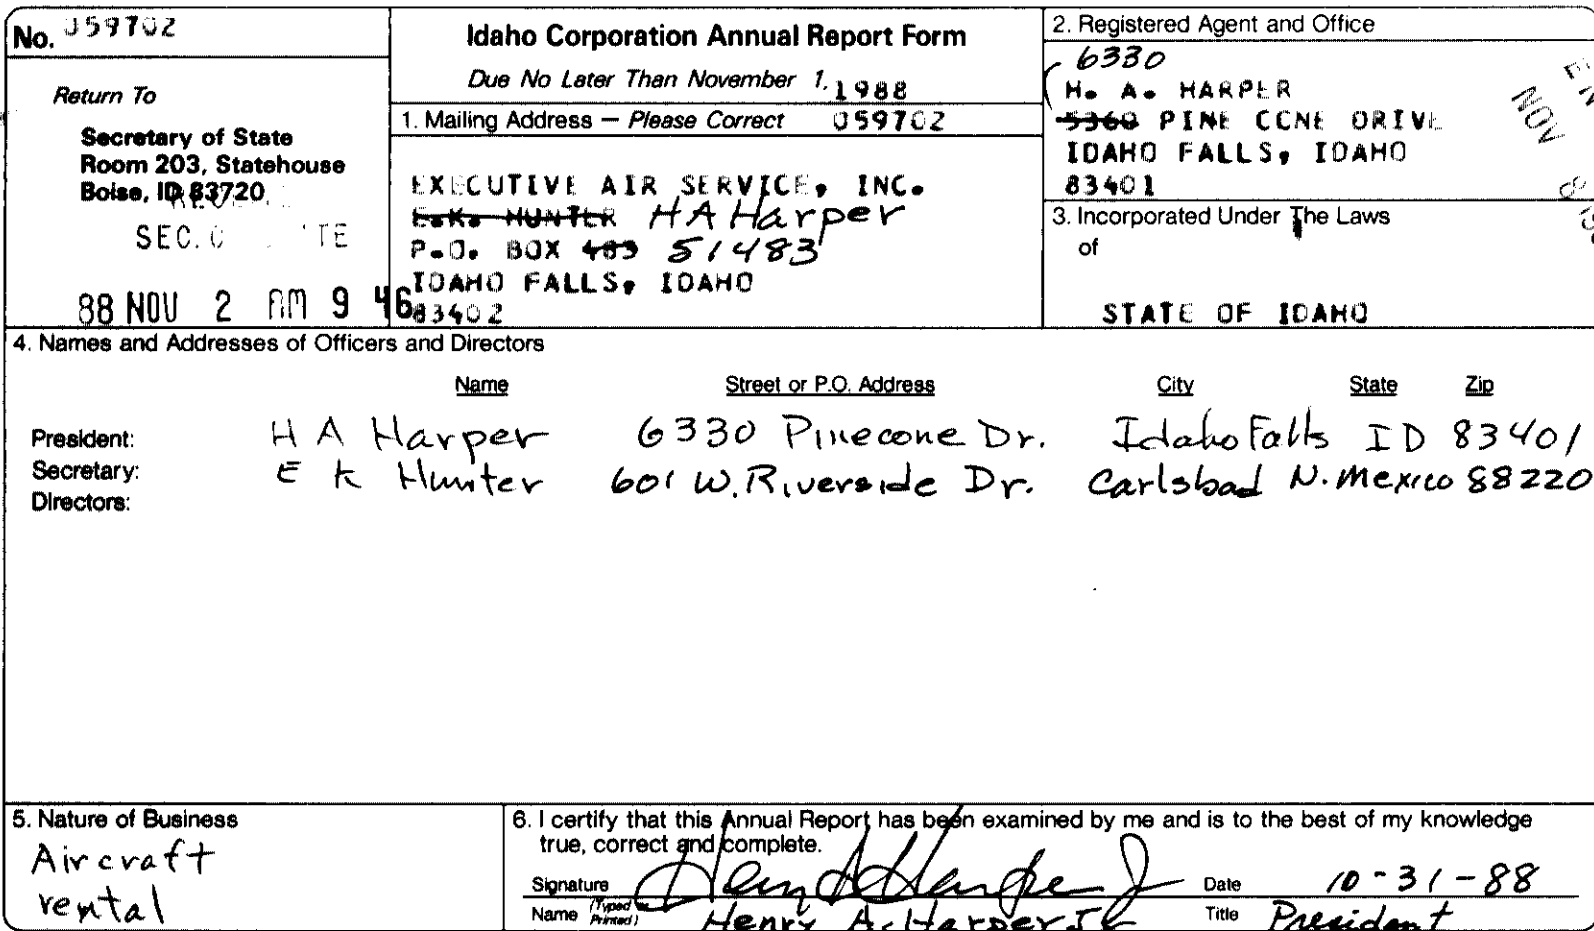 No. 059702
Return To
Secretary of State
Room 203, Statehouse
Boise, ID 83720
SEC.
88 NOV 2 AM 9 46
Idaho Corporation Annual Report Form
Due No Later Than November 1, 1988
1. Mailing Address — Please Correct 059702
EXECUTIVE AIR SERVICE, INC.
E.K. HUNTER H A Harper
P.O. BOX 483 51483
IDAHO FALLS, IDAHO
83402
2. Registered Agent and Office
6330
H. A. HARPER
5360 PINE CCNE DRIVE
IDAHO FALLS, IDAHO
83401
NOV
3. Incorporated Under The Laws
of
STATE OF IDAHO
4. Names and Addresses of Officers and Directors
Name Street or P.O. Address City State Zip
President: H A Harper 6330 Pinecone Dr. Idaho Falls ID 83401
Secretary: E K Hunter 601 W. Riverside Dr. Carlsbad N. Mexico 88220
Directors:
5. Nature of Business
Aircraft
rental
6. I certify that this Annual Report has been examined by me and is to the best of my knowledge
true, correct and complete.
Signature Henry A Harper Jr Date 10-31-88
Name (Typed or Printed) Henry A. Harper Jr Title President